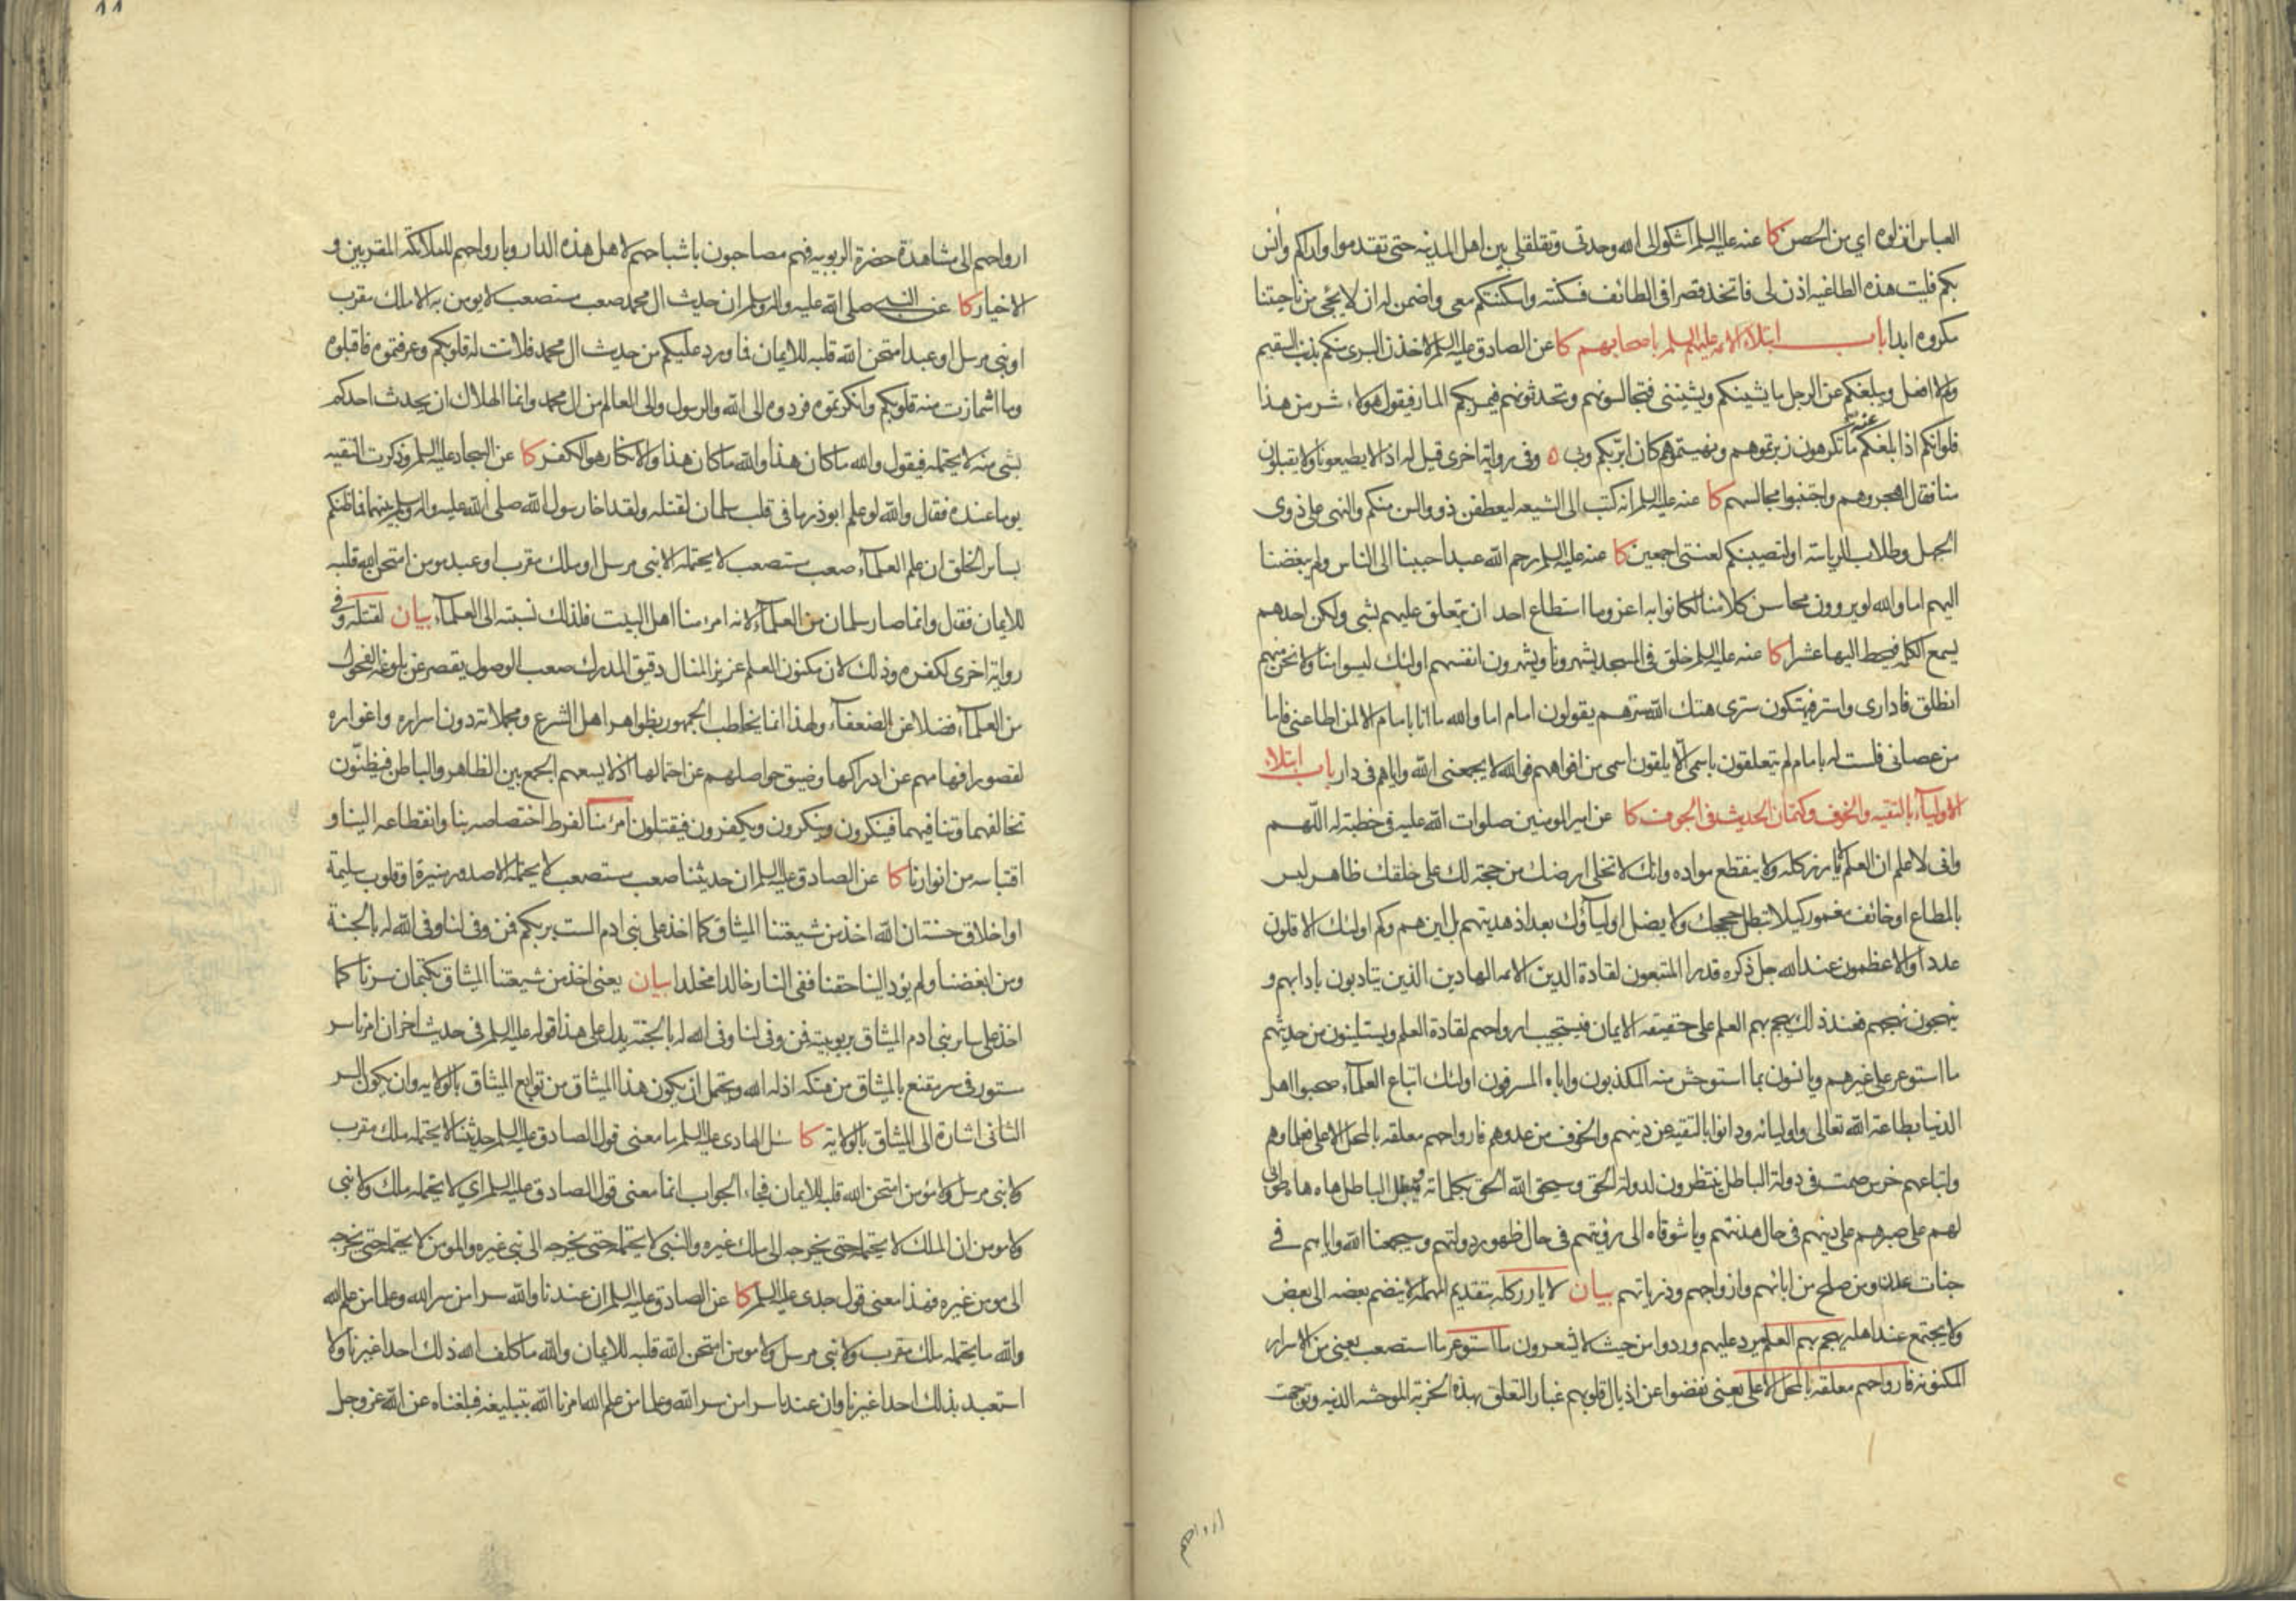 العباس انزلوه اي من الحصن كا عنه عليه السلم اشكو الى الله وحدتي وتقلقلي بين اهل المدينه حتى تقدموا واراكم وانس
بكم فليت هذه الطاغيه اذن لى فاتخذ قصرا فى الطائف فسكنته واسكنتكم معى واضمن له ان لا يجئ من ناحيتنا
مكروه ابدا باب ابتلاء الائمه عليهم السلم باصحابهم كا عن الصادق عليه السلم لاخذن البرى منكم بذنب السقيم
ولم لا افعل ويبلغكم عن الرجل ما يشينكم ويشيننى فتجالسونهم وتحدثونهم فيمر بكم المار فيقول هولاء شر من هذا
فلو انكم اذا بلغكم عنه ما تكرهون زبرتموهم ونهيتموهم كان ابر بكم وبى ٥ وفى رواية اخرى قيل له اذا لا يطيعونا ولا يقبلون
منا فقال اهجروهم واجتنبوا مجالسهم كا عنه عليه السلم انه كتب الى الشيعه ليعطفن ذوو السن منكم والنهى على ذوى
الجهل وطلاب الرياسة او لتصيبنكم لعنتى اجمعين كا عنه عليه السلم رحم الله عبدا حببنا الى الناس ولم يبغضنا
اليهم اما والله لو يروون محاسن كلامنا لكانوا به اعز وما استطاع احد ان يتعلق عليهم بشى ولكن احدهم
يسمع الكلمه فيحط اليها عشرا كا عنه عليه السلم خلق فى المسجد يشهرونا ويشهرون انفسهم اولئك ليسوا منا ولا نحن منهم
انطلق فادارى واستر فيهتكون سترى هتك الله سترهم يقولون امام اما والله ما انا بامام الا لمن اطاعنى فاما
من عصانى فلست له بامام لم يتعلقون باسمى الا يلقون اسمى من افواههم فوالله لا يجمعنى الله واياهم فى دار باب ابتلاء
الاولياء بالتقيه والخوف وكتمان الحديث فى الجوف كا عن امير المومنين صلوات الله عليه فى خطبة له اللهم
وانى لاعلم ان العلم لا يارز كله ولا ينقطع مواده وانك لا تخلى ارضك من حجة لك على خلقك ظاهر ليس
بالمطاع او خائف مغمور كيلا تبطل حججك ولا يضل اولياؤك بعد اذ هديتهم بل اين هم وكم اولئك الاقلون
عددا والاعظمون عند الله جل ذكره قدرا المتبعون لقادة الدين الائمه الهادين الذين يتادبون بادابهم و
ينهجون نهجهم فعند ذلك يهجم بهم العلم على حقيقه الايمان فيستجيب ارواحهم لقادة العلم ويستلينون من حديثهم
ما استوعر على غيرهم ويانسون بما استوحش منه المكذبون واباه المسرفون اولئك اتباع العلماء صحبوا اهل
الدنيا بطاعة الله تعالى واوليائه ودانوا بالتقيه عن دينهم والخوف من عدوهم فارواحهم معلقه بالمحل الاعلى فعلماوهم
واتباعهم خرس صمت فى دولة الباطل ينتظرون لدولة الحق وسيحق الله الحق بكلماته ويبطل الباطل ها ه ها ه طوبى
لهم على صبرهم على دينهم فى حال هدنتهم ويا شوقاه الى رؤيتهم فى حال ظهور دولتهم وسيجمعنا الله واياهم فى
جنات عدن ومن صلح من ابائهم وازواجهم وذرياتهم بيان لا يارز كله بتقديم المهمله لا ينضم بعضه الى بعض
ولا يجتمع عند اهله يهجم بهم العلم يرد عليهم وردوا من حيث لا يشعرون ما استوعر ما استصعب يعنى من الاسرار
المكنونه فارواحهم معلقه بالمحل الاعلى يعنى نفضوا عن اذيال قلوبهم غبار التعلق بهذه الخربة الموحشه الدنيه وتوجهت
ارواحهم
١١
ارواحهم الى مشاهدة حضرة الربوبيه فهم مصاحبون باشباحهم لاهل هذه الدار وبارواحهم للملائكة المقربين و
الاخيار كا عن النبى صلى الله عليه واله وسلم ان حديث ال محمد صعب مستصعب لا يومن به الا ملك مقرب
او نبى مرسل او عبد امتحن الله قلبه للايمان فما ورد عليكم من حديث ال محمد فلانت له قلوبكم وعرفتموه فاقبلوه
وما اشمازت منه قلوبكم وانكرتموه فردوه الى الله والى الرسول والى العالم من ال محمد وانما الهلاك ان يحدث احدكم
بشى منه لا يحتمله فيقول والله ما كان هذا والله ما كان هذا والانكار هو الكفر كا عن السجاد عليه السلم وذكرت التقيه
يوما عنده فقال والله لو علم ابوذر ما فى قلب سلمان لقتله ولقد اخا رسول الله صلى الله عليه واله وسلم بينهما فما ظنكم
بسائر الخلق ان علم العلماء صعب مستصعب لا يحتمله الا نبى مرسل او ملك مقرب او عبد مومن امتحن الله قلبه
للايمان فقال وانما صار سلمان من العلماء لانه امرؤ منا اهل البيت فلذلك نسبته الى العلماء بيان لقتله وفى
رواية اخرى لكفره وذلك لان مكنون العلم عزيز المنال دقيق المدرك صعب الوصول يقصر عن بلوغه الفحول
من العلماء فضلا عن الضعفاء ولهذا انما يخاطب الجمهور بظواهر اهل الشرع ومجملاته دون اسراره واغواره
لقصور افهامهم عن ادراكها وضيق حواصلهم عن احتمالها اذ لا يسعهم الجمع بين الظاهر والباطن فيظنون
تخالفهما وتنافيهما فينكرون وينكرون ويكفرون فيقتلون امرؤ منا لفرط اختصاصه بنا وانقطاعه الينا و
اقتباسه من انوارنا كا عن الصادق عليه السلم ان حديثنا صعب مستصعب لا يحتمله الا صدور منيرة او قلوب سليمة
او اخلاق حسنة ان الله اخذ من شيعتنا الميثاق كما اخذ على بنى ادم الست بربكم فمن وفى لنا وفى الله له بالجنة
ومن ابغضنا ولم يؤد الينا حقنا ففى النار خالدا مخلدا بيان يعنى اخذ من شيعتنا الميثاق بكتمان سرنا كما
اخذ على سائر بنى ادم الميثاق بربوبيته فمن وفى لنا وفى الله له بالجنة يدل على هذا قوله عليه السلم فى حديث اخر ان امرنا سر
مستور فى سر مقنع بالميثاق من هتكه اذله الله ويحتمل ان يكون هذا الميثاق من توابع الميثاق بالولايه وان يكون السر
الثانى اشارة الى الميثاق بالولاية كا سئل الهادى عليه السلم ما معنى قول الصادق عليه السلم حديثنا لا يحتمله ملك مقرب
ولا نبى مرسل ولا مؤمن امتحن الله قلبه للايمان فجاء الجواب انما معنى قول الصادق عليه السلم اي لا يحتمله ملك ولا نبى
ولا مومن ان الملك لا يحتمله حتى يخرجه الى ملك غيره والنبى لا يحتمله حتى يخرجه الى نبى غيره والمومن لا يحتمله حتى يخرجه
الى مومن غيره فهذا معنى قول جدى عليه السلم كا عن الصادق عليه السلم ان عندنا والله سرا من سر الله وعلما من علم الله
والله ما يحتمله ملك مقرب ولا نبى مرسل ولا مومن امتحن الله قلبه للايمان والله ما كلف الله ذلك احدا غيرنا ولا
استعبد بذلك احدا غيرنا وان عندنا سرا من سر الله وعلما من علم الله امرنا الله بتبليغه فبلغناه عن الله عز وجل